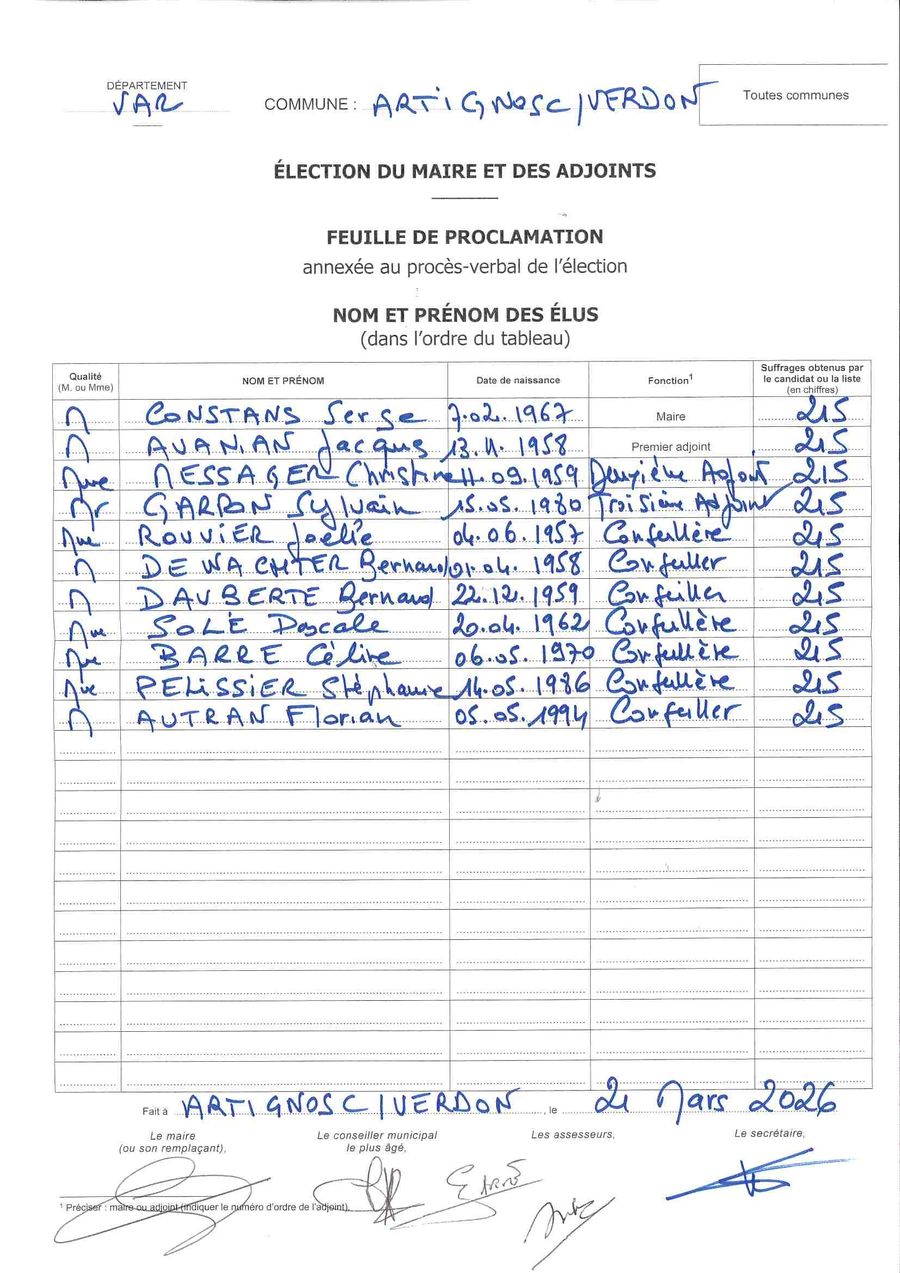 DÉPARTEMENT
VAR
COMMUNE : ARTIGNOSC/VERDON
Toutes communes
ÉLECTION DU MAIRE ET DES ADJOINTS
FEUILLE DE PROCLAMATION
annexée au procès-verbal de l'élection
NOM ET PRÉNOM DES ÉLUS
(dans l'ordre du tableau)
Qualité (M. ou Mme) NOM ET PRÉNOM Date de naissance Fonction¹ Suffrages obtenus par le candidat ou la liste (en chiffres)
M CONSTANS Serge 7.02.1967 Maire 215
M AVANIAN Jacques 13.11.1958 Premier adjoint 215
Mme MESSAGER Christine 11.09.1959 Deuxième Adjoint 215
Mr GARRON Sylvain 15.05.1980 Troisième Adjoint 215
Mme ROUVIER Joëlle 04.06.1957 Conseillère 215
M DEWACHTER Bernard 01.04.1958 Conseiller 215
M DAUBERTE Bernard 22.12.1959 Conseiller 215
Mme SOLÉ Pascale 20.04.1962 Conseillère 215
Mme BARRE Céline 06.05.1970 Conseillère 215
Mme PELISSIER Stéphanie 14.05.1986 Conseillère 215
M AUTRAN Florian 05.05.1994 Conseiller 215
Fait à ARTIGNOSC/VERDON, le 21 Mars 2026
Le maire
(ou son remplaçant),
Le conseiller municipal
le plus âgé,
Les assesseurs,
Le secrétaire,
¹ Préciser : maire ou adjoint (indiquer le numéro d'ordre de l'adjoint).